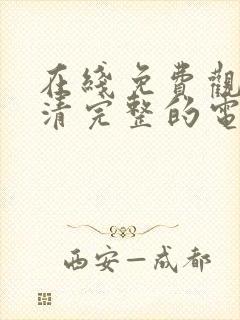 在綫免費觀
清完整的電
西安—成都